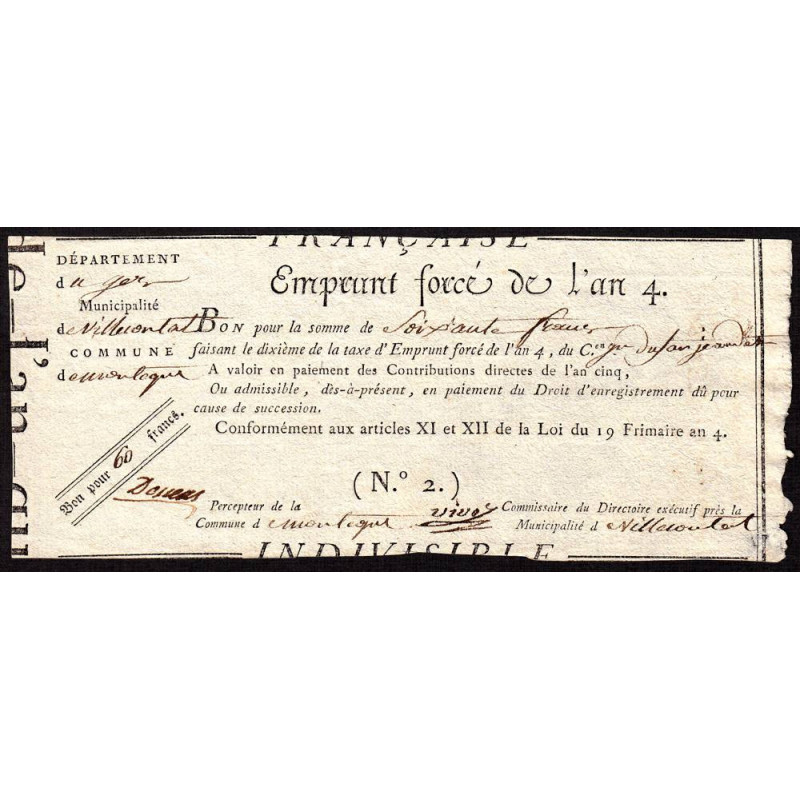 FRANÇAISE
DÉPARTEMENT
du gers
Municipalité
de Villecontal
COMMUNE
de montegut
Emprunt forcé de l'an 4.
BON pour la somme de Soixante francs
faisant le dixième de la taxe d'Emprunt forcé de l'an 4, du C.en
A valoir en paiement des Contributions directes de l'an cinq,
Ou admissible, dès-à-présent, en paiement du Droit d'enregistrement dû pour
cause de succession.
Conformément aux articles XI et XII de la Loi du 19 Frimaire an 4.
Bon pour 60 francs.
(N.º 2.)
Percepteur de la
Commune de montegut
Commissaire du Directoire exécutif près la
Municipalité de Villecontal
INDIVISIBLE